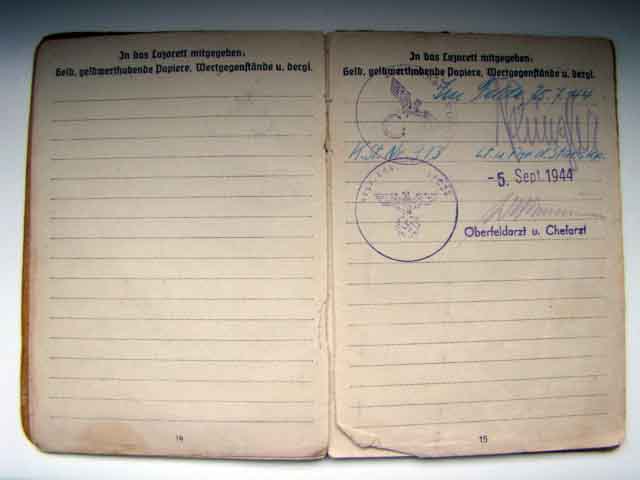 In das Lazarett mitgegeben:
Geld, geldwerthabende Papiere, Wertgegenstände u. dergl.
14
In das Lazarett mitgegeben:
Geld, geldwerthabende Papiere, Wertgegenstände u. dergl.
Im Felde, 25.7.44
-5. Sept. 1944
Oberfeldarzt u. Chefarzt
15